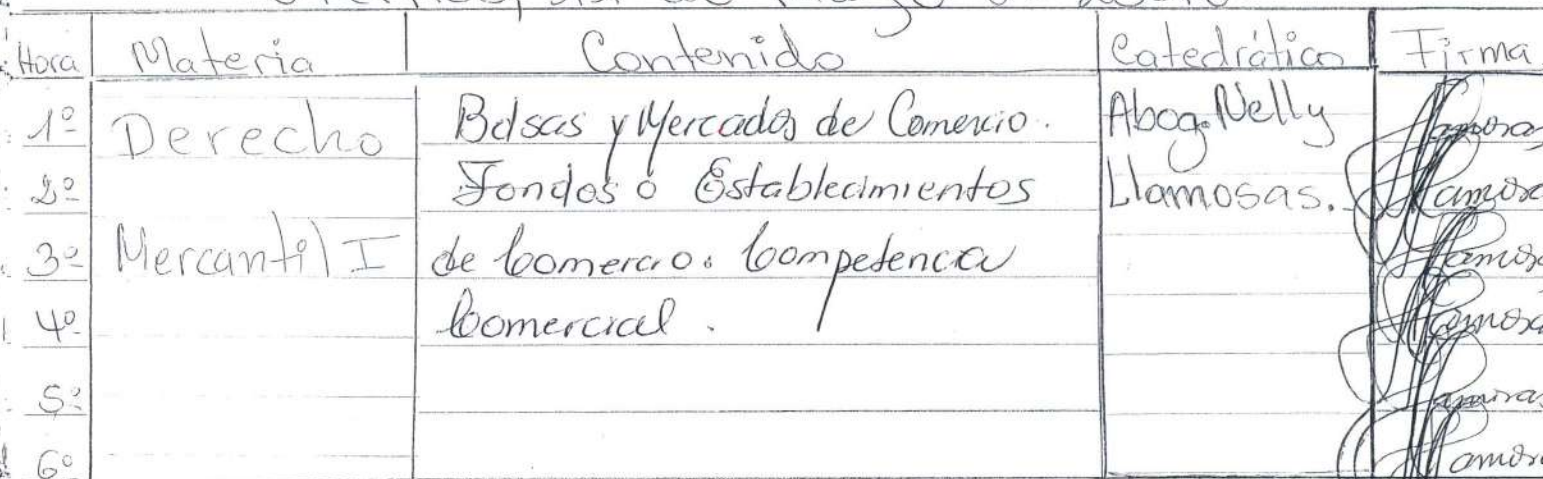 de Mayo
Hora Materia Contenido Catedrático Firma
1º Derecho Bolsas y Mercados de Comercio. Abog. Nelly Llamosas
2º Fondos ó Establecimientos Llamosas. Llamosas
3º Mercantil I de Comercio. Competencia Llamosas
4º Comercial. Llamosas
5º Llamosas
6º Llamosas